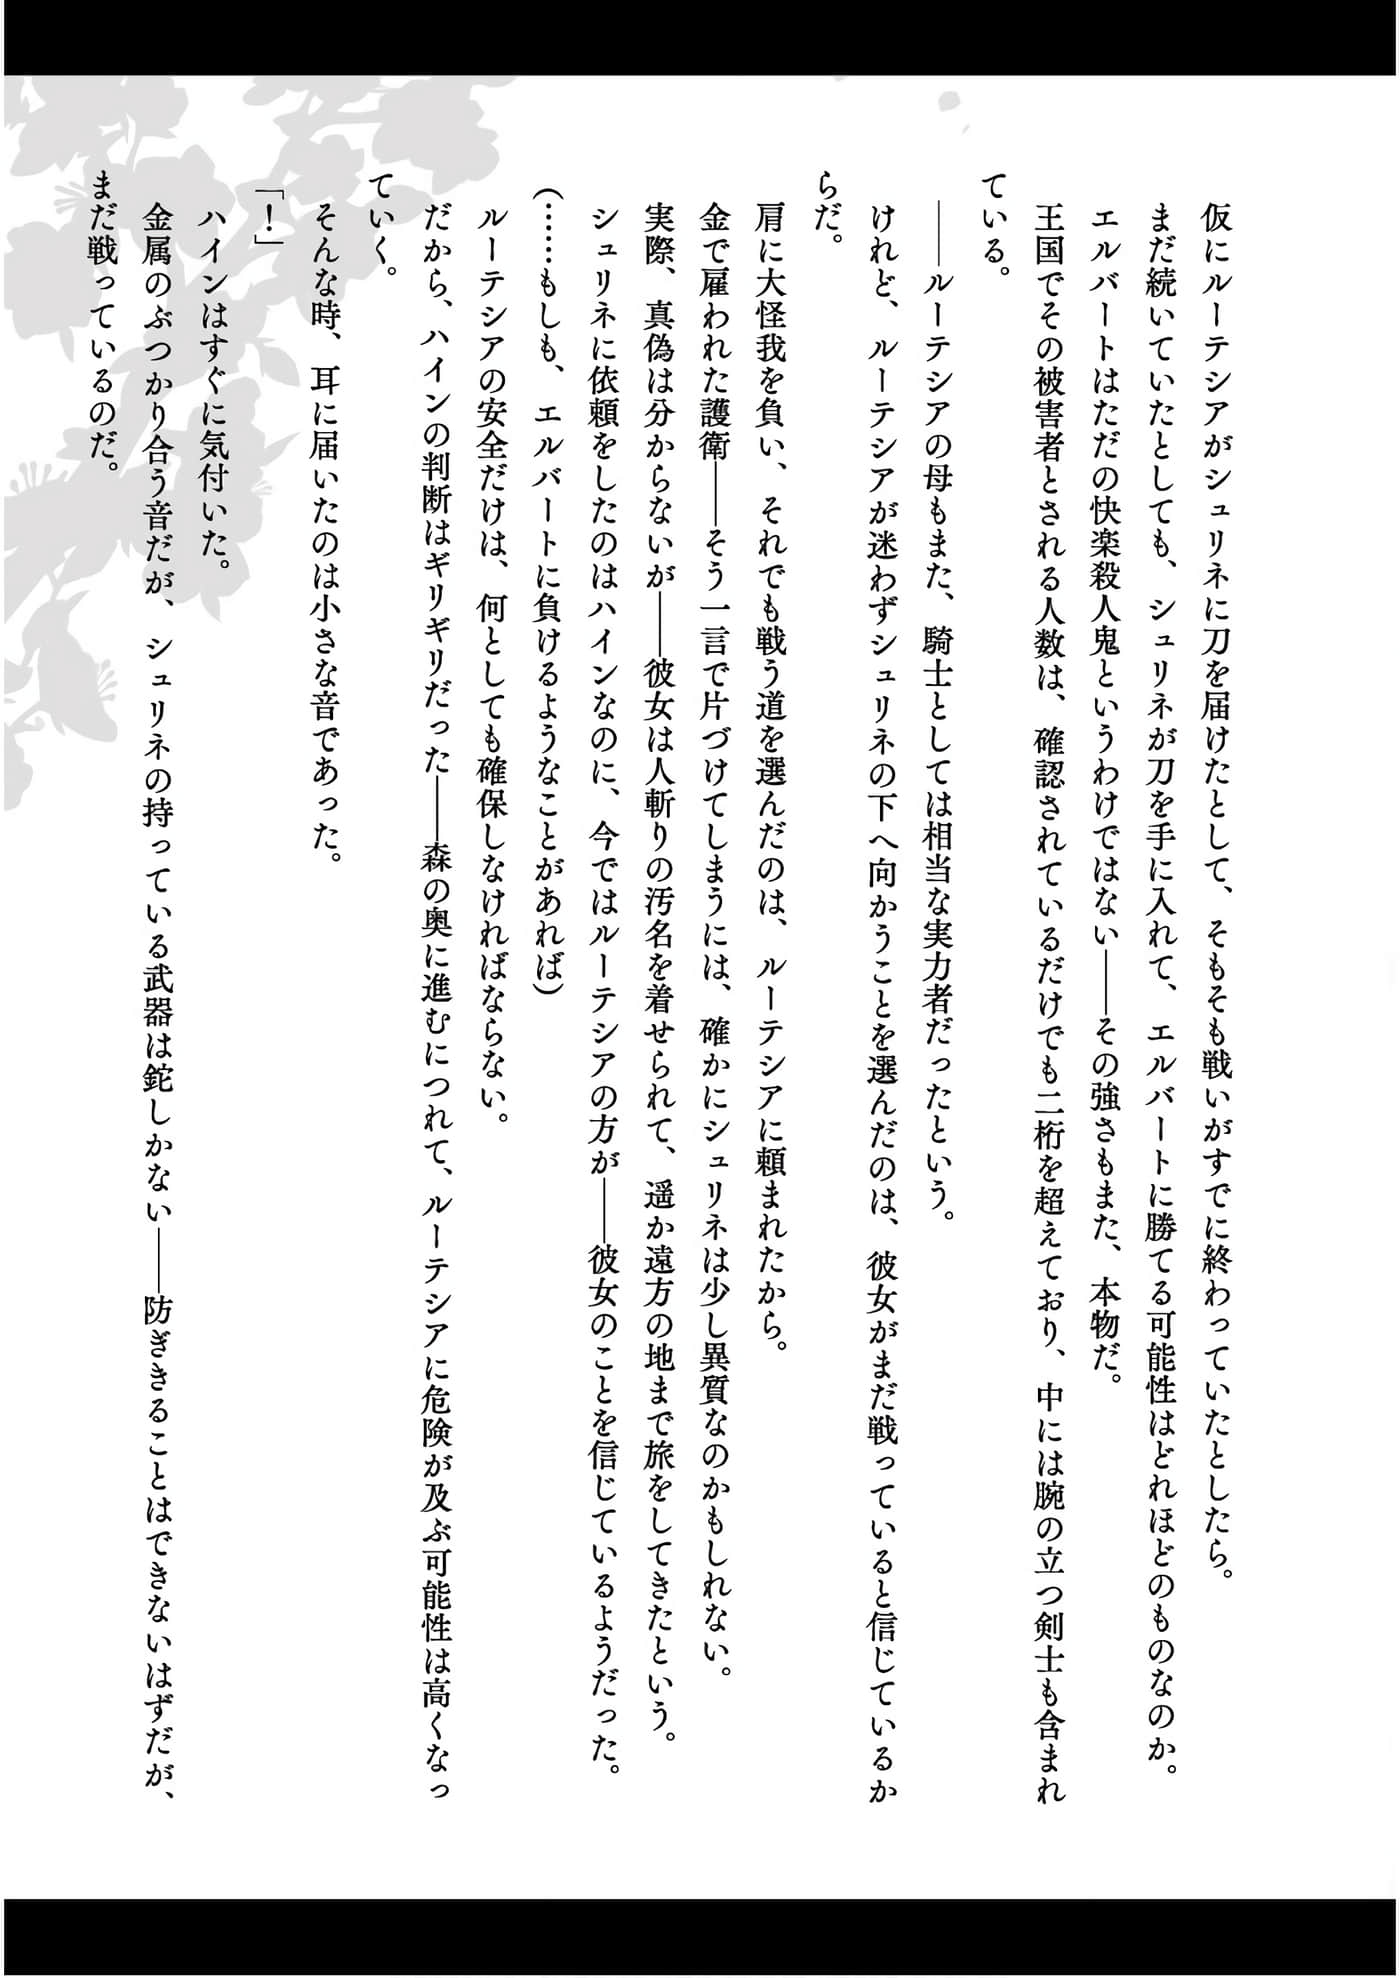 仮にルーテシアがシュリネに刀を届けたとして、そもそも戦いがすでに終わっていたとしたら。
まだ続いていたとしても、シュリネが刀を手に入れて、エルバートに勝てる可能性はどれほどのものなのか。
エルバートはただの快楽殺人鬼というわけではない――その強さもまた、本物だ。
王国でその被害者とされる人数は、確認されているだけでも二桁を超えており、中には腕の立つ剣士も含まれ
ている。
――ルーテシアの母もまた、騎士としては相当な実力者だったという。
けれど、ルーテシアが迷わずシュリネの下へ向かうことを選んだのは、彼女がまだ戦っていると信じているか
らだ。
肩に大怪我を負い、それでも戦う道を選んだのは、ルーテシアに頼まれたから。
金で雇われた護衛――そう一言で片づけてしまうには、確かにシュリネは少し異質なのかもしれない。
実際、真偽は分からないが――彼女は人斬りの汚名を着せられて、遥か遠方の地まで旅をしてきたという。
シュリネに依頼をしたのはハインなのに、今ではルーテシアの方が――彼女のことを信じているようだった。
(……もしも、エルバートに負けるようなことがあれば)
ルーテシアの安全だけは、何としても確保しなければならない。
だから、ハインの判断はギリギリだった――森の奥に進むにつれて、ルーテシアに危険が及ぶ可能性は高くなっ
ていく。
そんな時、耳に届いたのは小さな音であった。
「！」
ハインはすぐに気付いた。
金属のぶつかり合う音だが、シュリネの持っている武器は鉈しかない――防ぎきることはできないはずだが、
まだ戦っているのだ。